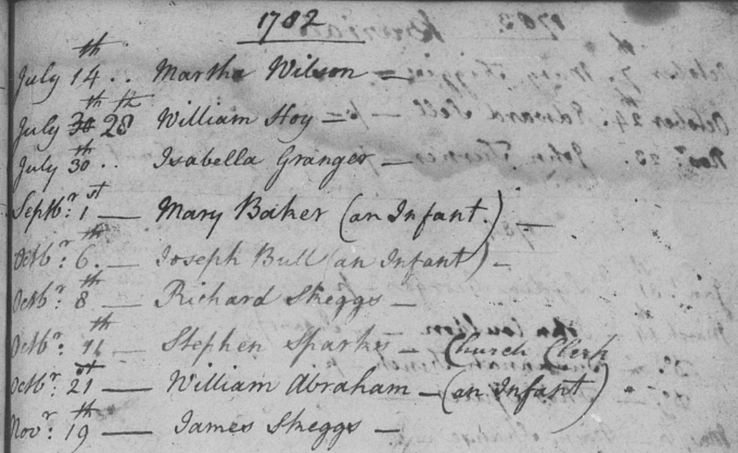 1782
July 14th .. Martha Wilson —
July 30th 28th William Hoy =
July 30th .. Isabella Granger —
Septbr. 1st — Mary Baker (an Infant.) —
Octbr. 6th. — Joseph Bull (an Infant) —
Octbr. 8th — Richard Skeggs —
Octbr. 11th — Stephen Sparks — Church Clerk
Octbr. 21st — William Abraham — (an Infant)
Novr. 19th — James Skeggs —